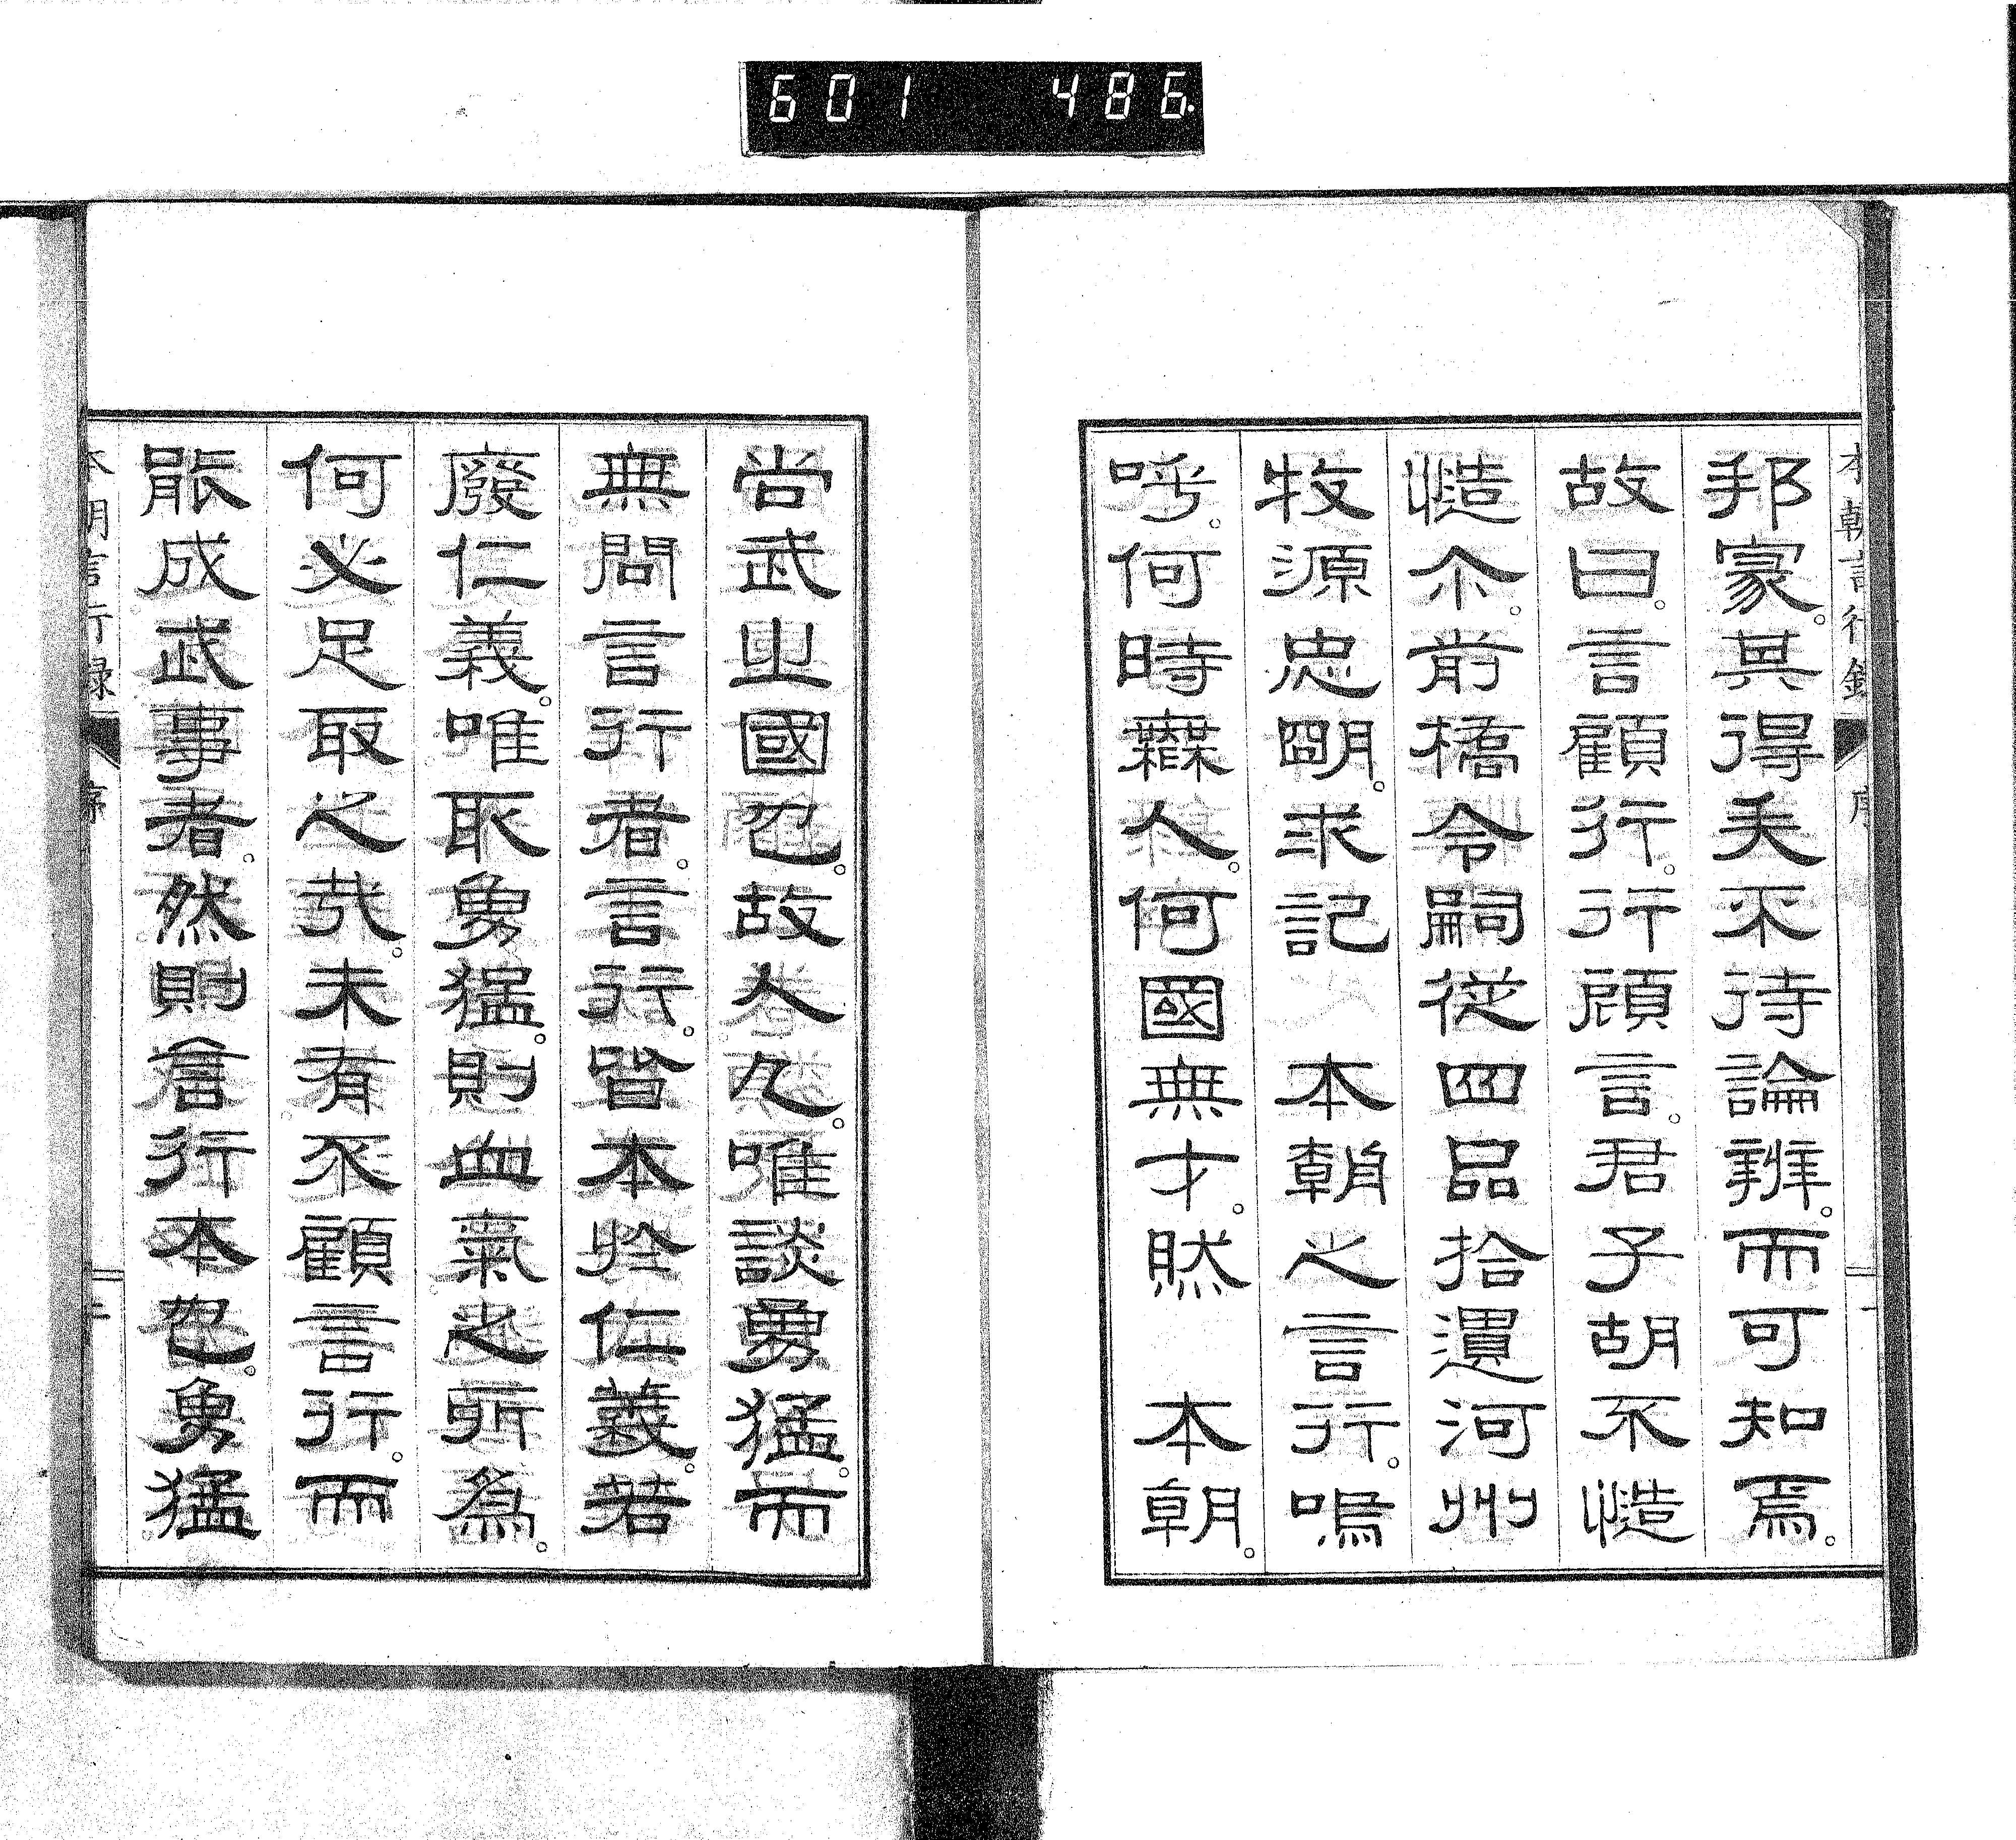 601 486.
本朝言行録 序 一
邦家。其得失不待論辨。而可知焉。
故曰。言顧行。行顧言。君子胡不慥
慥尒。前橋令嗣従四品拾遺河州
牧源忠明。求記 本朝之言行。嗚
呼。何時無人。何國無才。然 本朝。
尚武之國也。故人人。唯談勇猛。而
無問言行者。言行。皆本於仁義。若
廢仁義。唯取勇猛。則血氣之所為。
何必足取之哉。未有不顧言行。而
能成武事者。然則言行本也。勇猛
本朝言行録 序 二